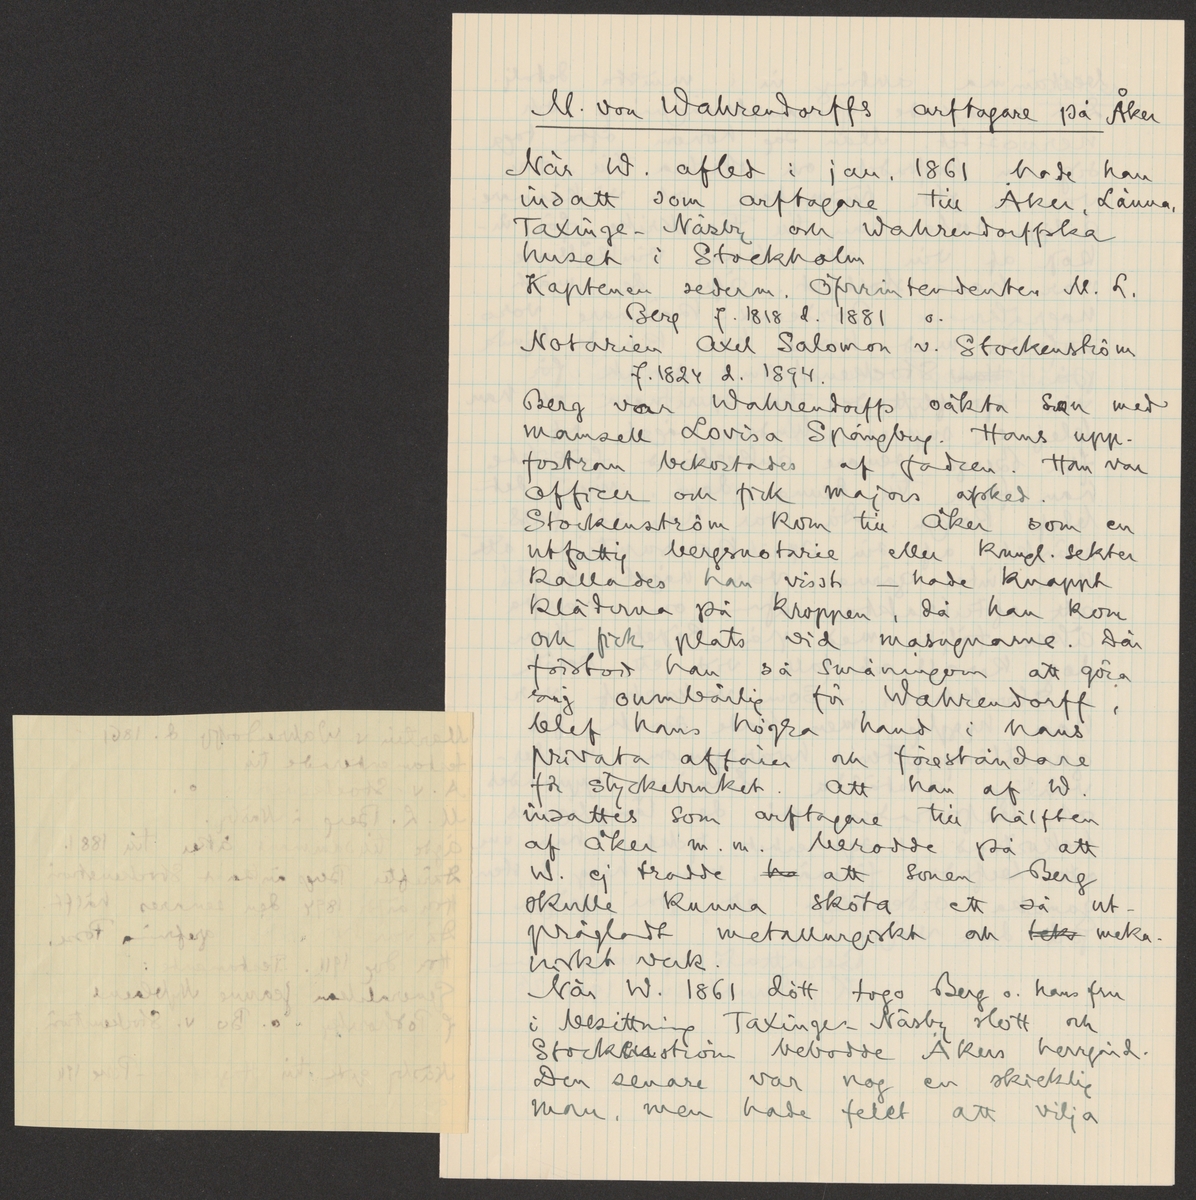 M. von Wahrendorffs arftagare på Åker
När W. afled i jan. 1861 hade han
insatt som arftagare till Åker, Länna,
Taxinge-Näsby och Wahrendorffska
huset i Stockholm
Kaptenen sederm. Öfverintendenten M. L.
Berg f. 1818 d. 1881 o.
Notarien Axel Salomon v. Stockenström
f. 1824 d. 1894.
Berg var Wahrendorffs oäkta son med
mamsell Lovisa Spångberg. Hans upp-
fostran bekostades af fadren. Han var
officer och fick majors afsked.
Stockenström kom till Åker som en
utfattig bergsnotarie eller kungl. sekter
kallades han visst – hade knappt
kläderna på kroppen, då han kom
och fick plats vid masugnarne. Där
förstod han så småningom att göra
sig oumbärlig för Wahrendorff,
blef hans högra hand i hans
privata affärer och föreståndare
för styckebruket. Att han af W.
insattes som arftagare till hälften
af Åker m.m. berodde på att
W. ej trodde ha att sonen Berg
skulle kunna sköta ett så ut-
prägladt metallurgiskt och teks meka-
niskt verk.
När W. 1861 dött togo Berg o. hans fru
i besittning Taxinge-Näsby slott och
Stockenström bebodde Åkers herrgård.
Den senare var nog en skicklig
man, men hade felet att vilja
Martin v Wahrendorff d. 1861
till
A. v.
M. L. Berg
Åker till 1881
Berg
1894
1911.
Generalskan
o. Bo v. Stockenström